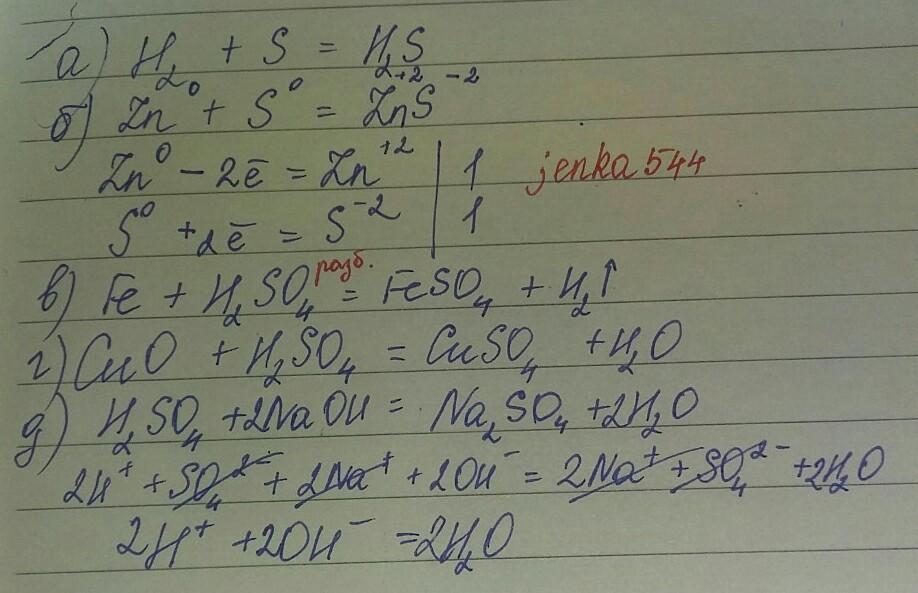 а) H₂ + S = H₂S
б) Zn⁰ + S⁰ = Zn⁺²S⁻²
Zn⁰ - 2ē = Zn⁺² | 1 jenka544
S⁰ + 2ē = S⁻² | 1
в) Fe + H₂SO₄ разб. = FeSO₄ + H₂↑
г) CuO + H₂SO₄ = CuSO₄ + H₂O
д) H₂SO₄ + 2NaOH = Na₂SO₄ + 2H₂O
2H⁺ + SO₄²⁻ + 2Na⁺ + 2OH⁻ = 2Na⁺ + SO₄²⁻ + 2H₂O
2H⁺ + 2OH⁻ = 2H₂O